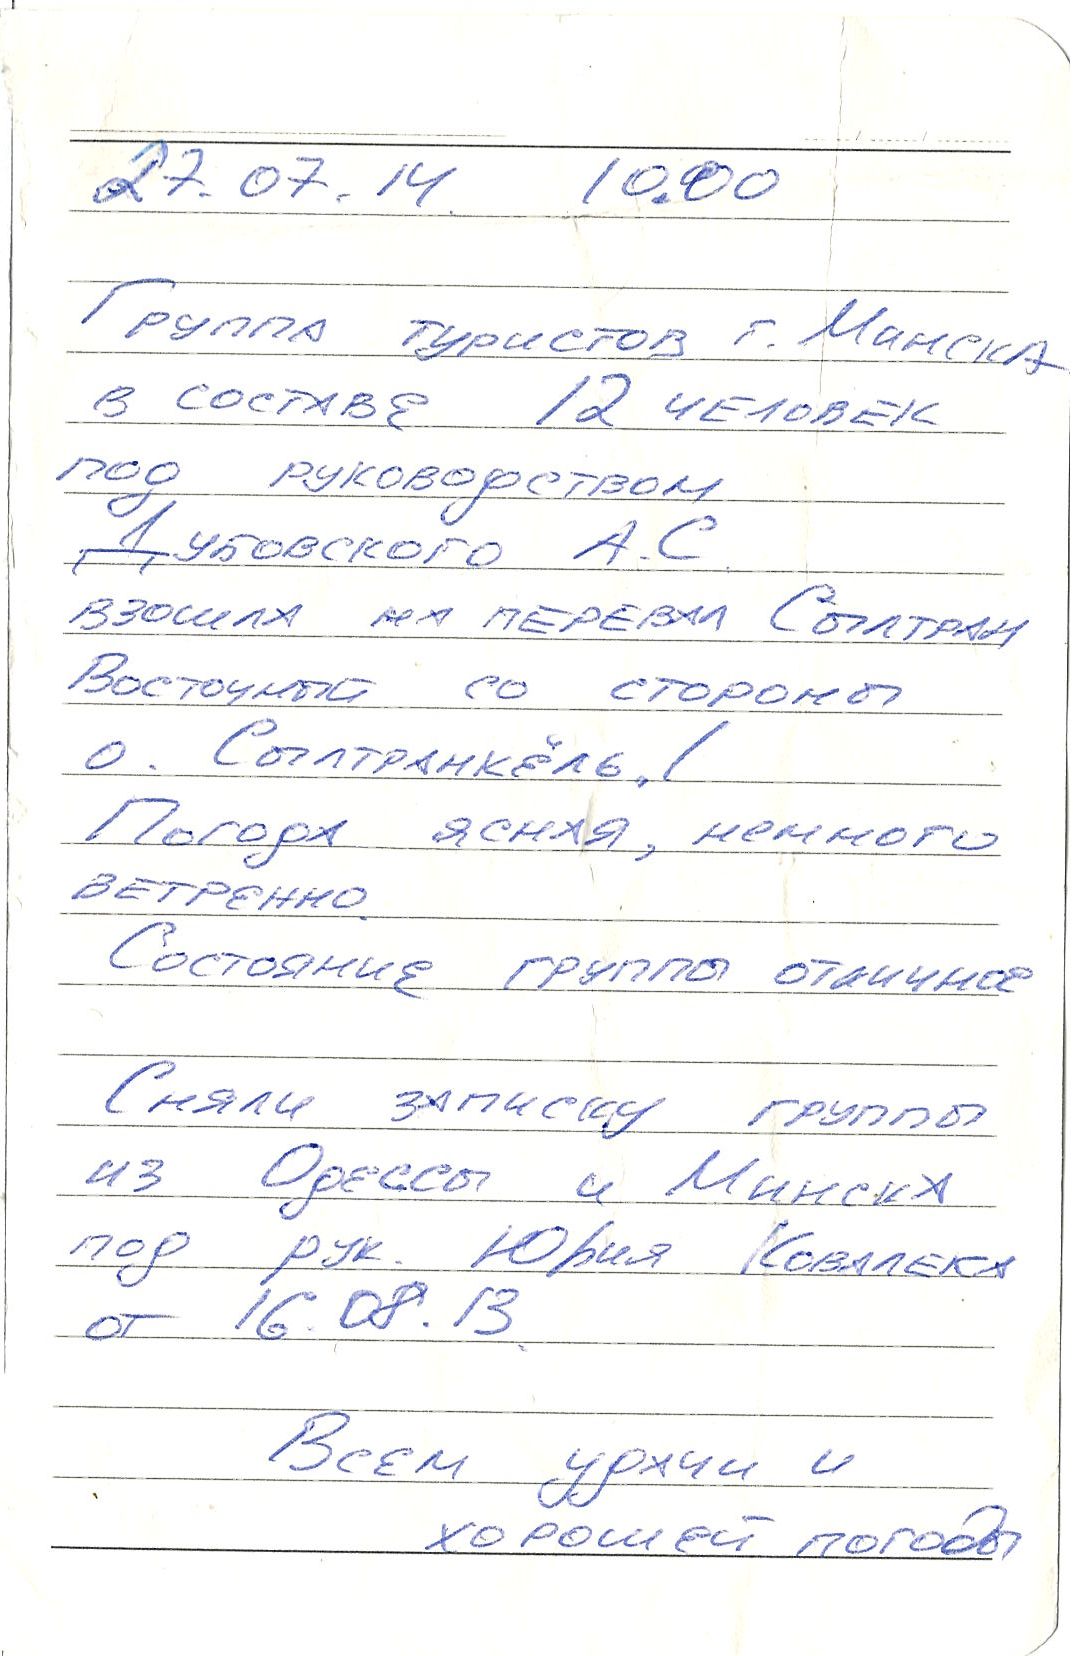 27.07.14 10.00
Группа туристов г. Минска
в составе 12 человек
под руководством
Дубовского А.С.
взошла на перевал Сылтран
Восточный со стороны
о. Сылтранкёль,
Погода ясная, немного
ветренно.
Состояние группы отличное
Сняли записку группы
из Одессы и Минска
под рук. Юрия Ковалека
от 16.08.13.
Всем удачи и
хорошей погоды